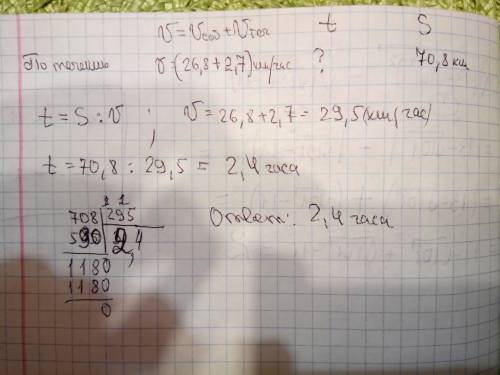 V = Vсоб + Vтеч t S
По течению V = (26,8 + 2,7) км/час ? 70,8 км
t = S : V ; V = 26,8 + 2,7 = 29,5 (км/час)
t = 70,8 : 29,5 = 2,4 часа
1 1
708 | 295 Ответ: 2,4 часа
590 | 2,4
1180
1180
0